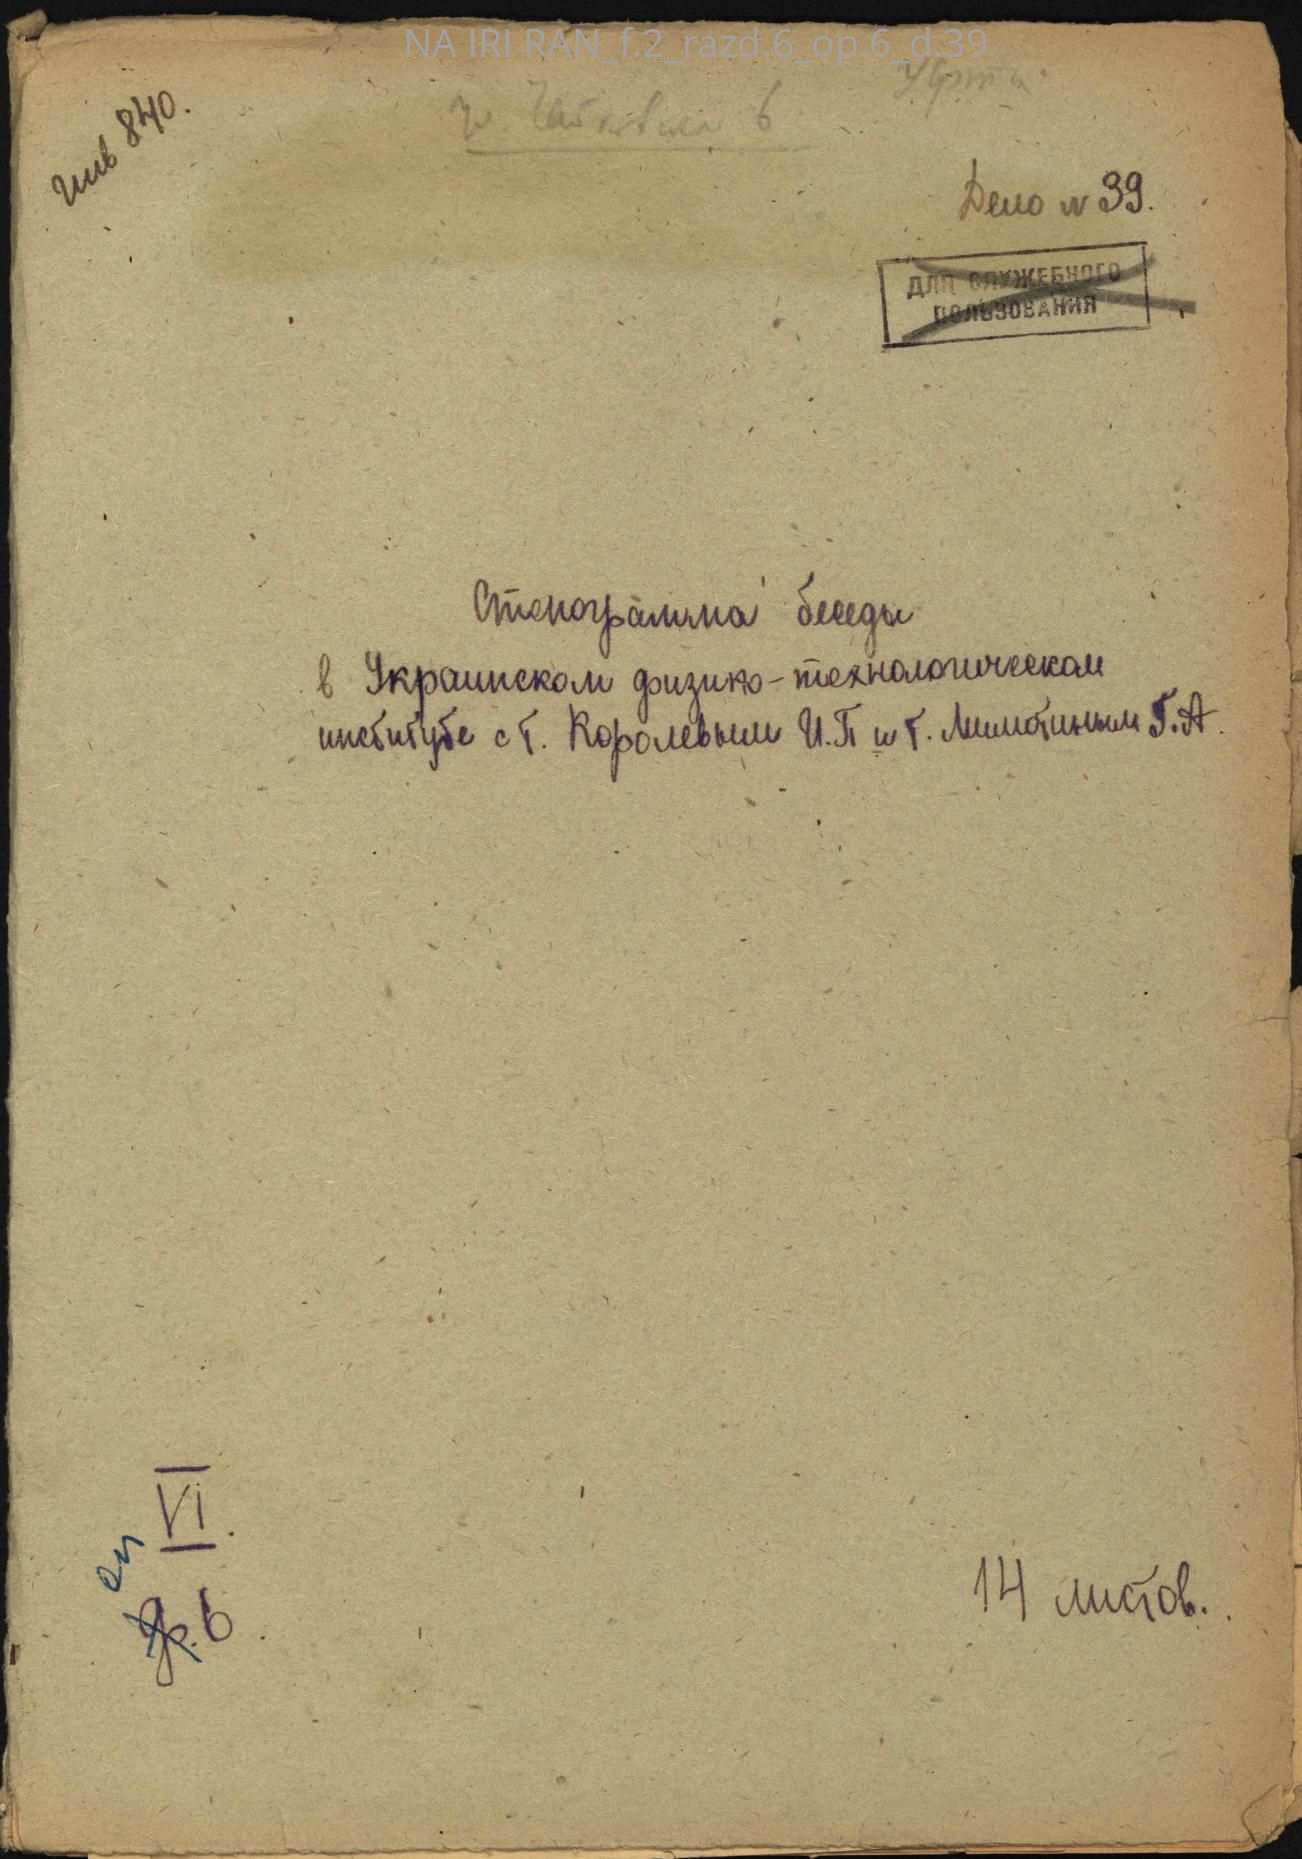 NA IRI RAN_f.2_razd.6_op.6_d.39
инв 840.
Дело № 39.
ДЛЯ СЛУЖЕБНОГО
ПОЛЬЗОВАНИЯ
Стенограмма беседы
в Украинском физико-технологическом
институте с т. Королевым И.П и т. Милютиным Г.А.
VI.
оп
6.
14 листов.